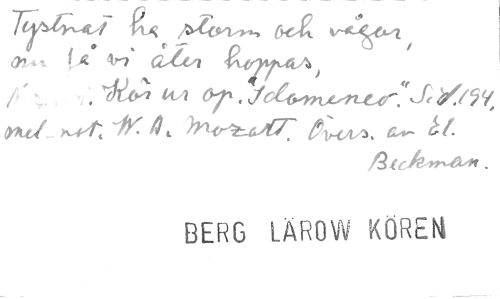 Tystnat ha storm och vågor,
nu få vi åter hoppas,
Kör ur op. "Idomeneo". Sid. 194,
mel. not. W. A. Mozart. Övers. av El.
Beckman.
BERG LÄROW KÖREN